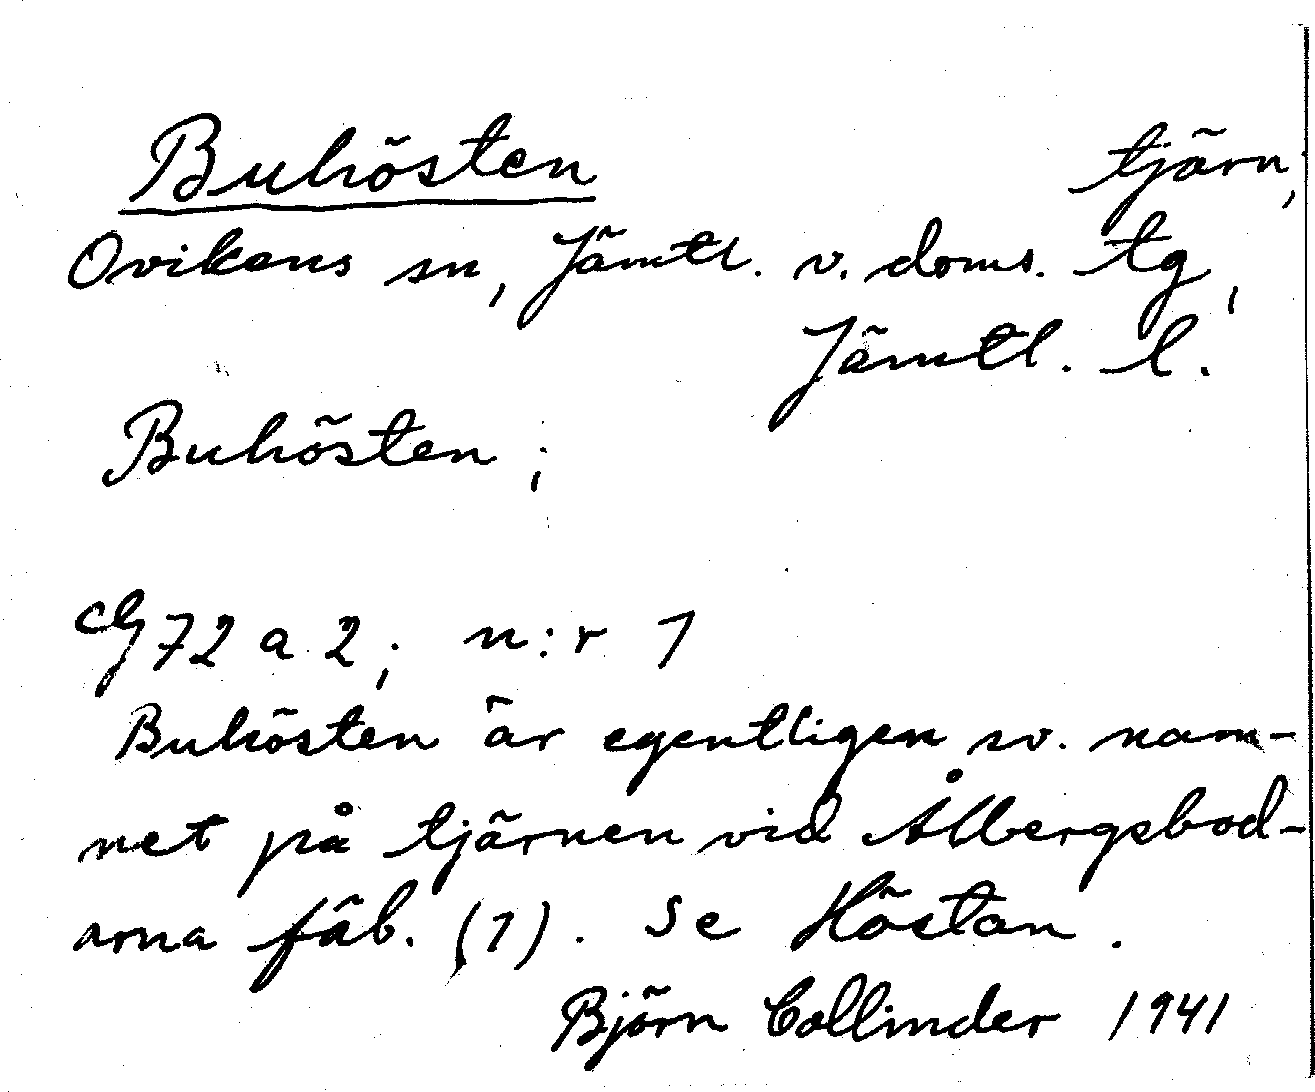 Buhösten tjärn,
Ovikens sn, Jämtl. v. doms. tg,
Jämtl. l.
Buhösten;
G 72 a 2; n:r 1
Buhösten är egentligen sv. nam-
net på tjärnen vid Ålbergsbod-
arna fäb. (1). Se Höstan.
Björn Collinder 1941